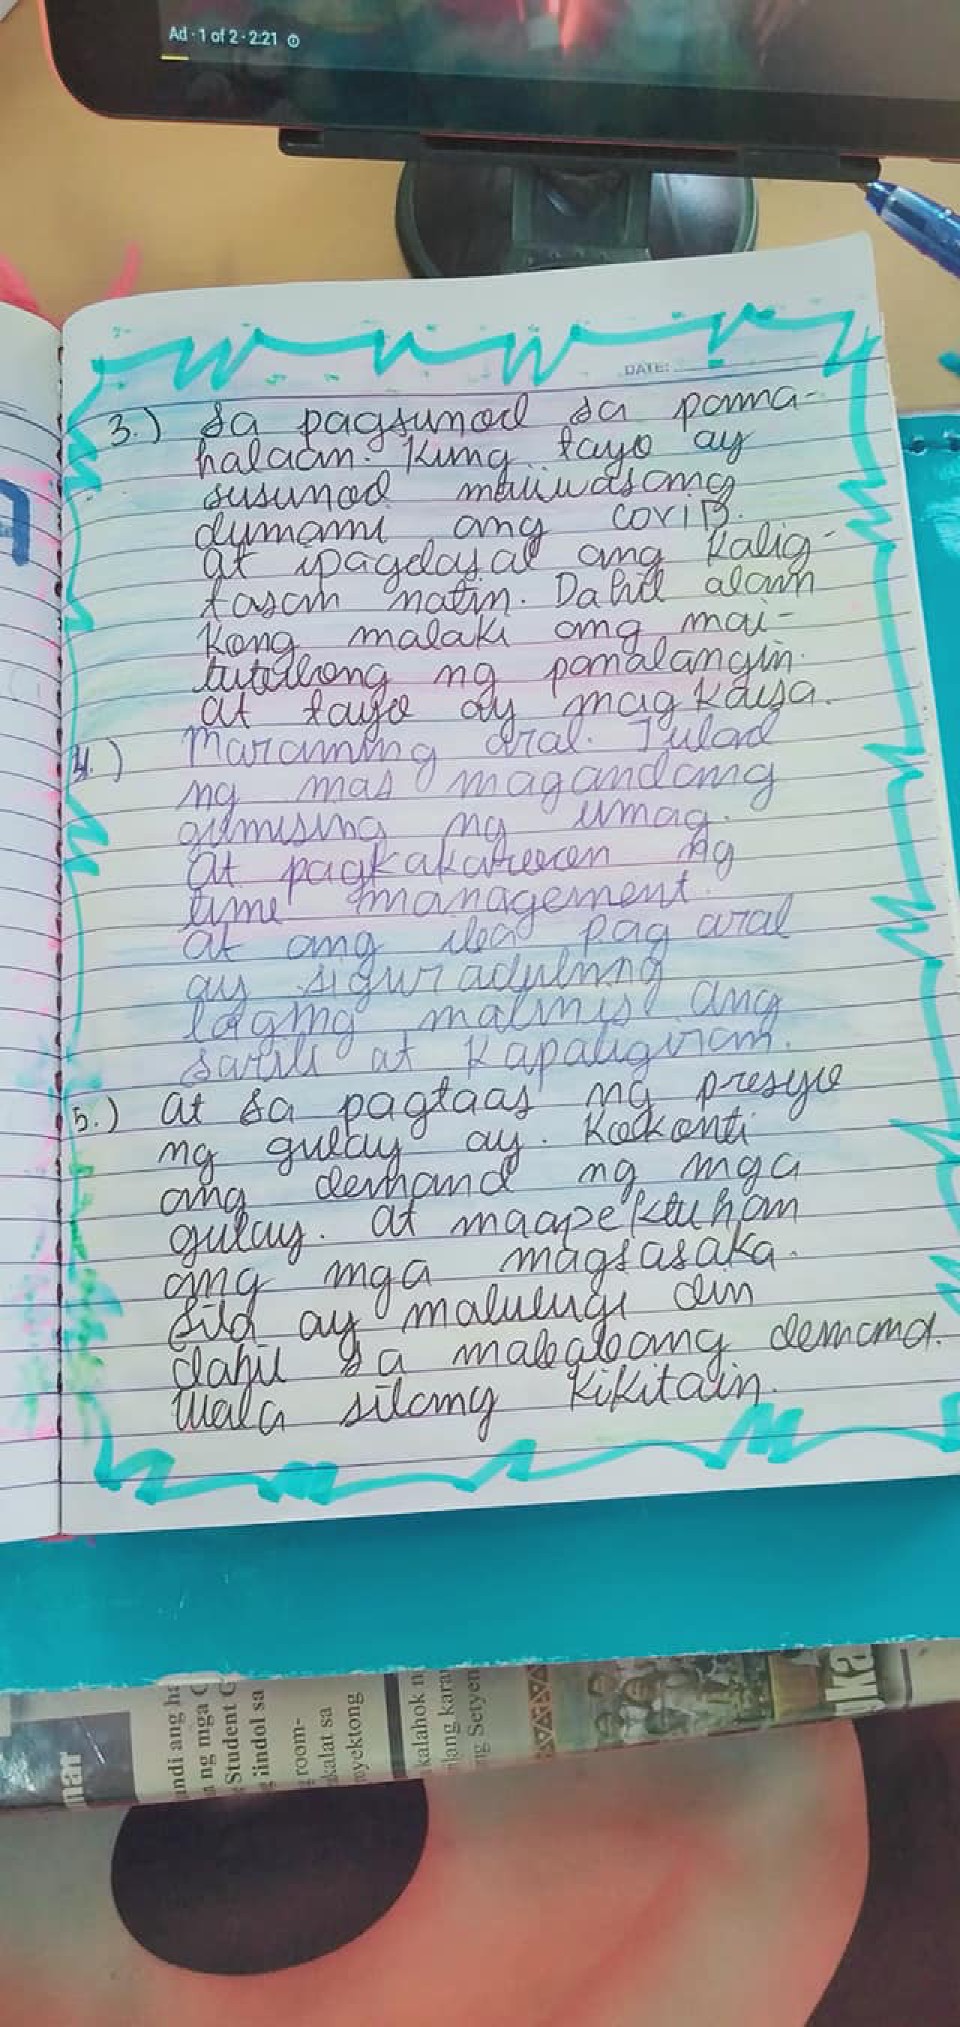 Ad · 1 of 2 · 2:21
DATE:
3.) Sa pagsunod sa pama-
halaan. Kung tayo ay
susunod maiiwasang
dumami ang COVID.
at ipagdasal ang Kalig-
tasan natin. Dahil alam
Kong malaki ang mai-
tutulong ng panalangin.
at tayo ay magkaisa.
4.) Maraming aral. Tulad
ng mas magandang
gumising ng umaga.
at pagkakaroon ng
time management.
at ang iba pag aral
ay siguraduhing
laging malinis ang
sarili at Kapaligiran.
5.) at sa pagtaas ng presyo
ng gulay ay. Kokonti
ang demand ng mga
gulay. at maapektuhan
ang mga magsasaka.
Sila ay malulugi din
dahil sa mababang demand.
Wala silang Kikitain.
andi ang ha
ng mga
Student
iindol sa
room-
kalat sa
oyektong
kalahok
ilang kara
ng Setyem
mar
ka